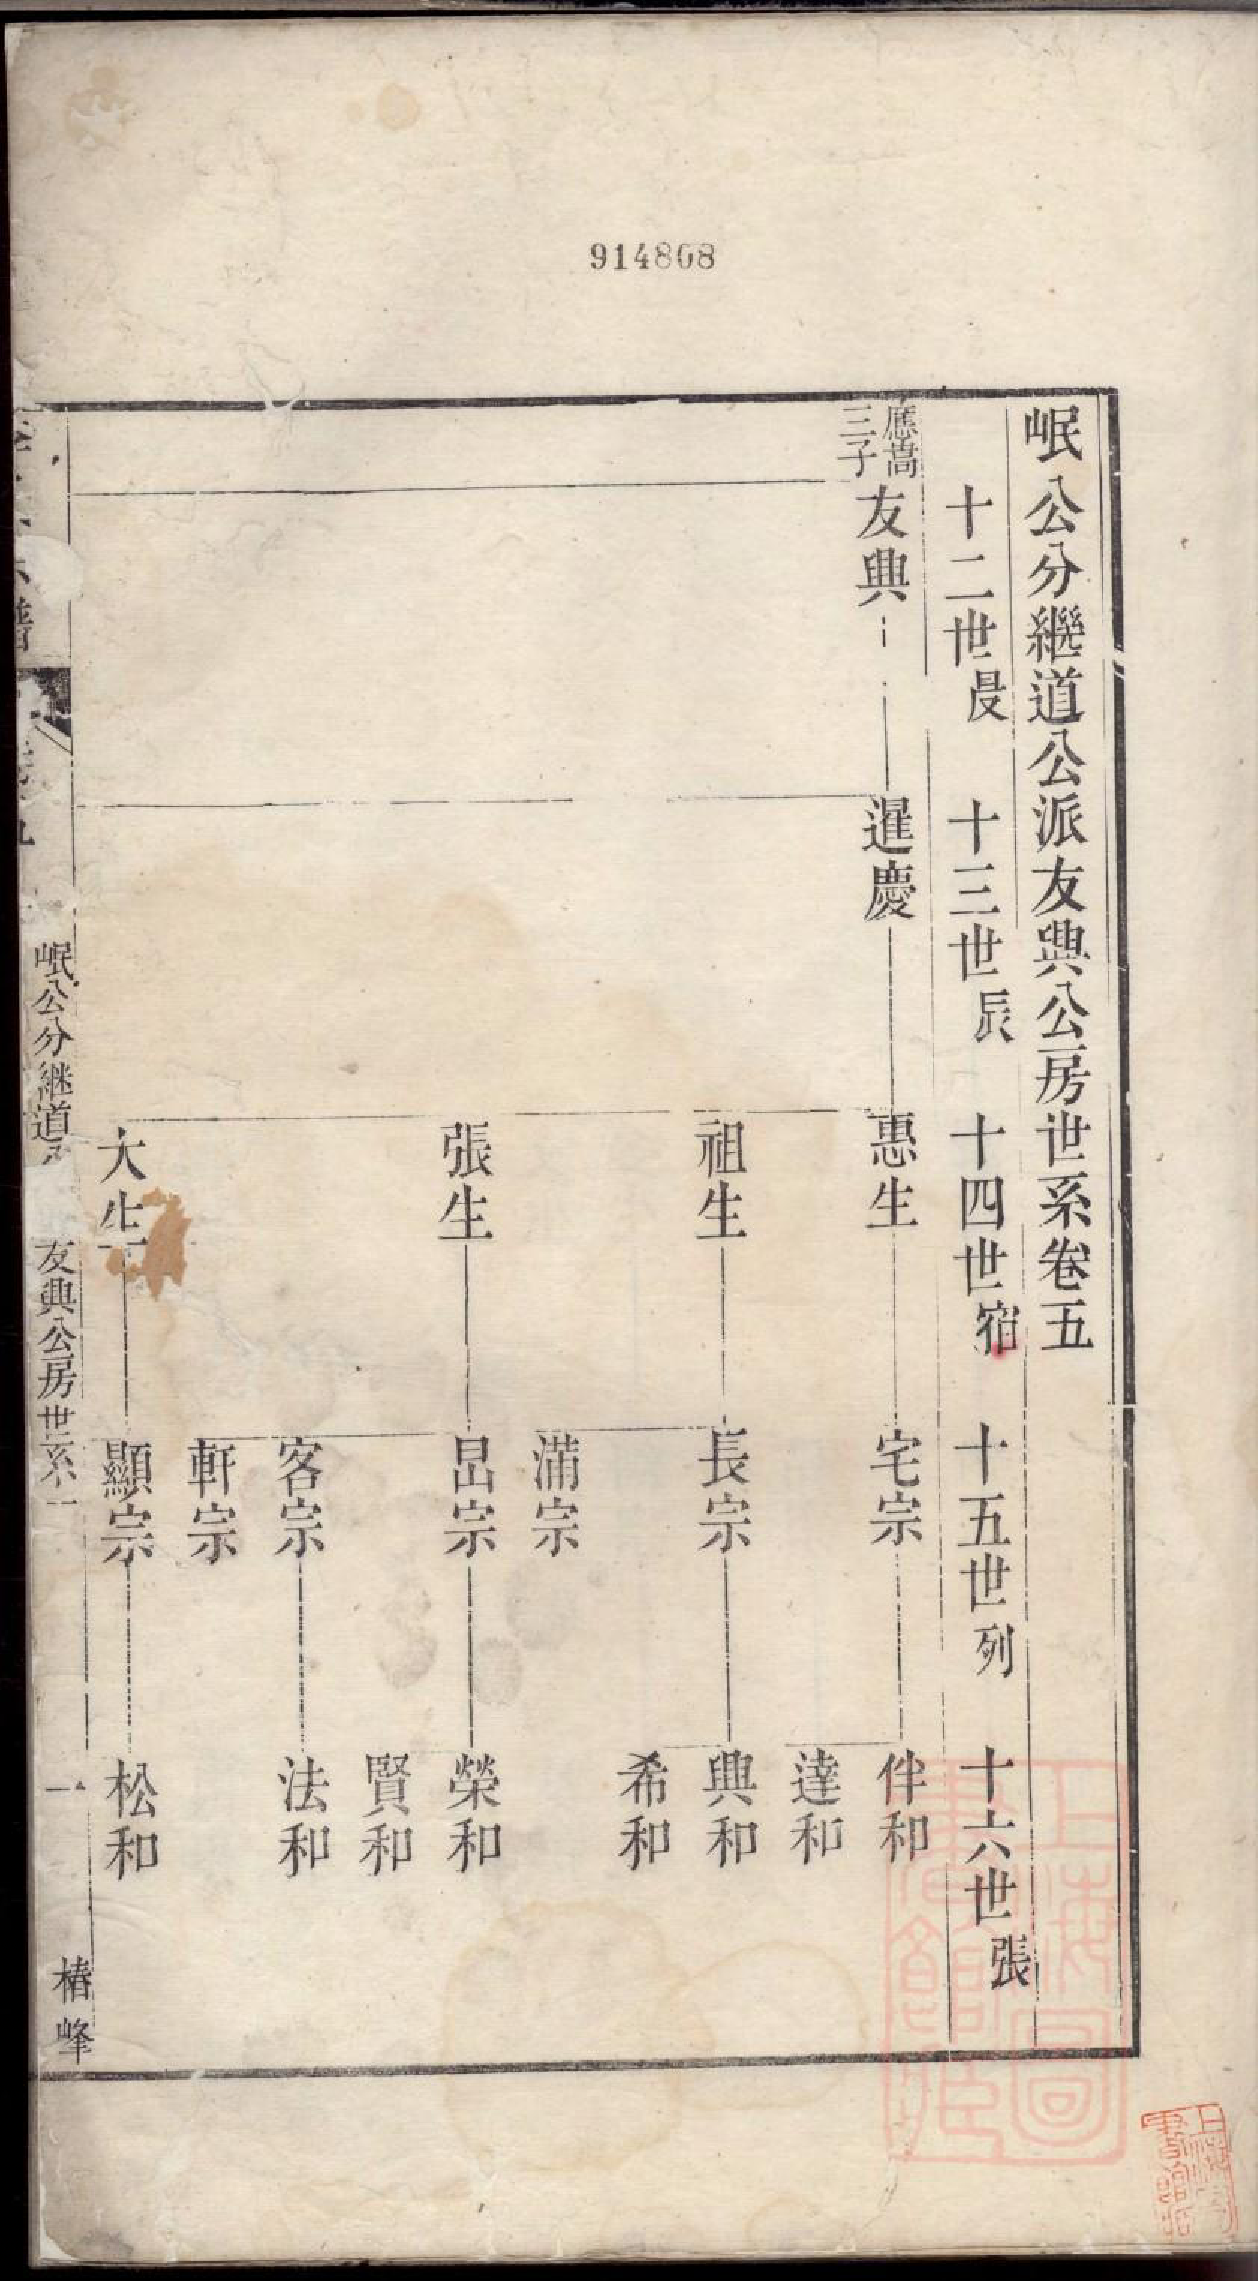 914808
岷公分繼道公派友興公房世系卷五
十二世昃 十三世辰 十四世宿 十五世列 十六世張
應嵩三子 友興 暹慶 惠生 宅宗 伴和
達和
祖生 長宗 興和
希和
滿宗
張生 昌宗 榮和
賢和
客宗 法和
軒宗
大生 顯宗 松和
岷公分継道 友興公房世系 一 椿峰
上海圖書館藏
上海圖書館藏